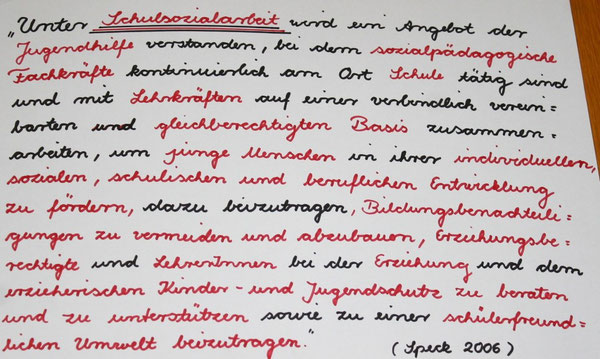 „Unter Schulsozialarbeit wird ein Angebot der
Jugendhilfe verstanden, bei dem sozialpädagogische
Fachkräfte kontinuierlich am Ort Schule tätig sind
und mit Lehrkräften auf einer verbindlich verein=
barten und gleichberechtigten Basis zusammen=
arbeiten, um junge Menschen in ihrer individuellen,
sozialen, schulischen und beruflichen Entwicklung
zu fördern, dazu beizutragen, Bildungsbenachteili=
gungen zu vermeiden und abzubauen, Erziehungsbe=
rechtigte und LehrerInnen bei der Erziehung und dem
erzieherischen Kinder- und Jugendschutz zu beraten
und zu unterstützen sowie zu einer schülerfreund=
lichen Umwelt beizutragen." (Speck 2006)